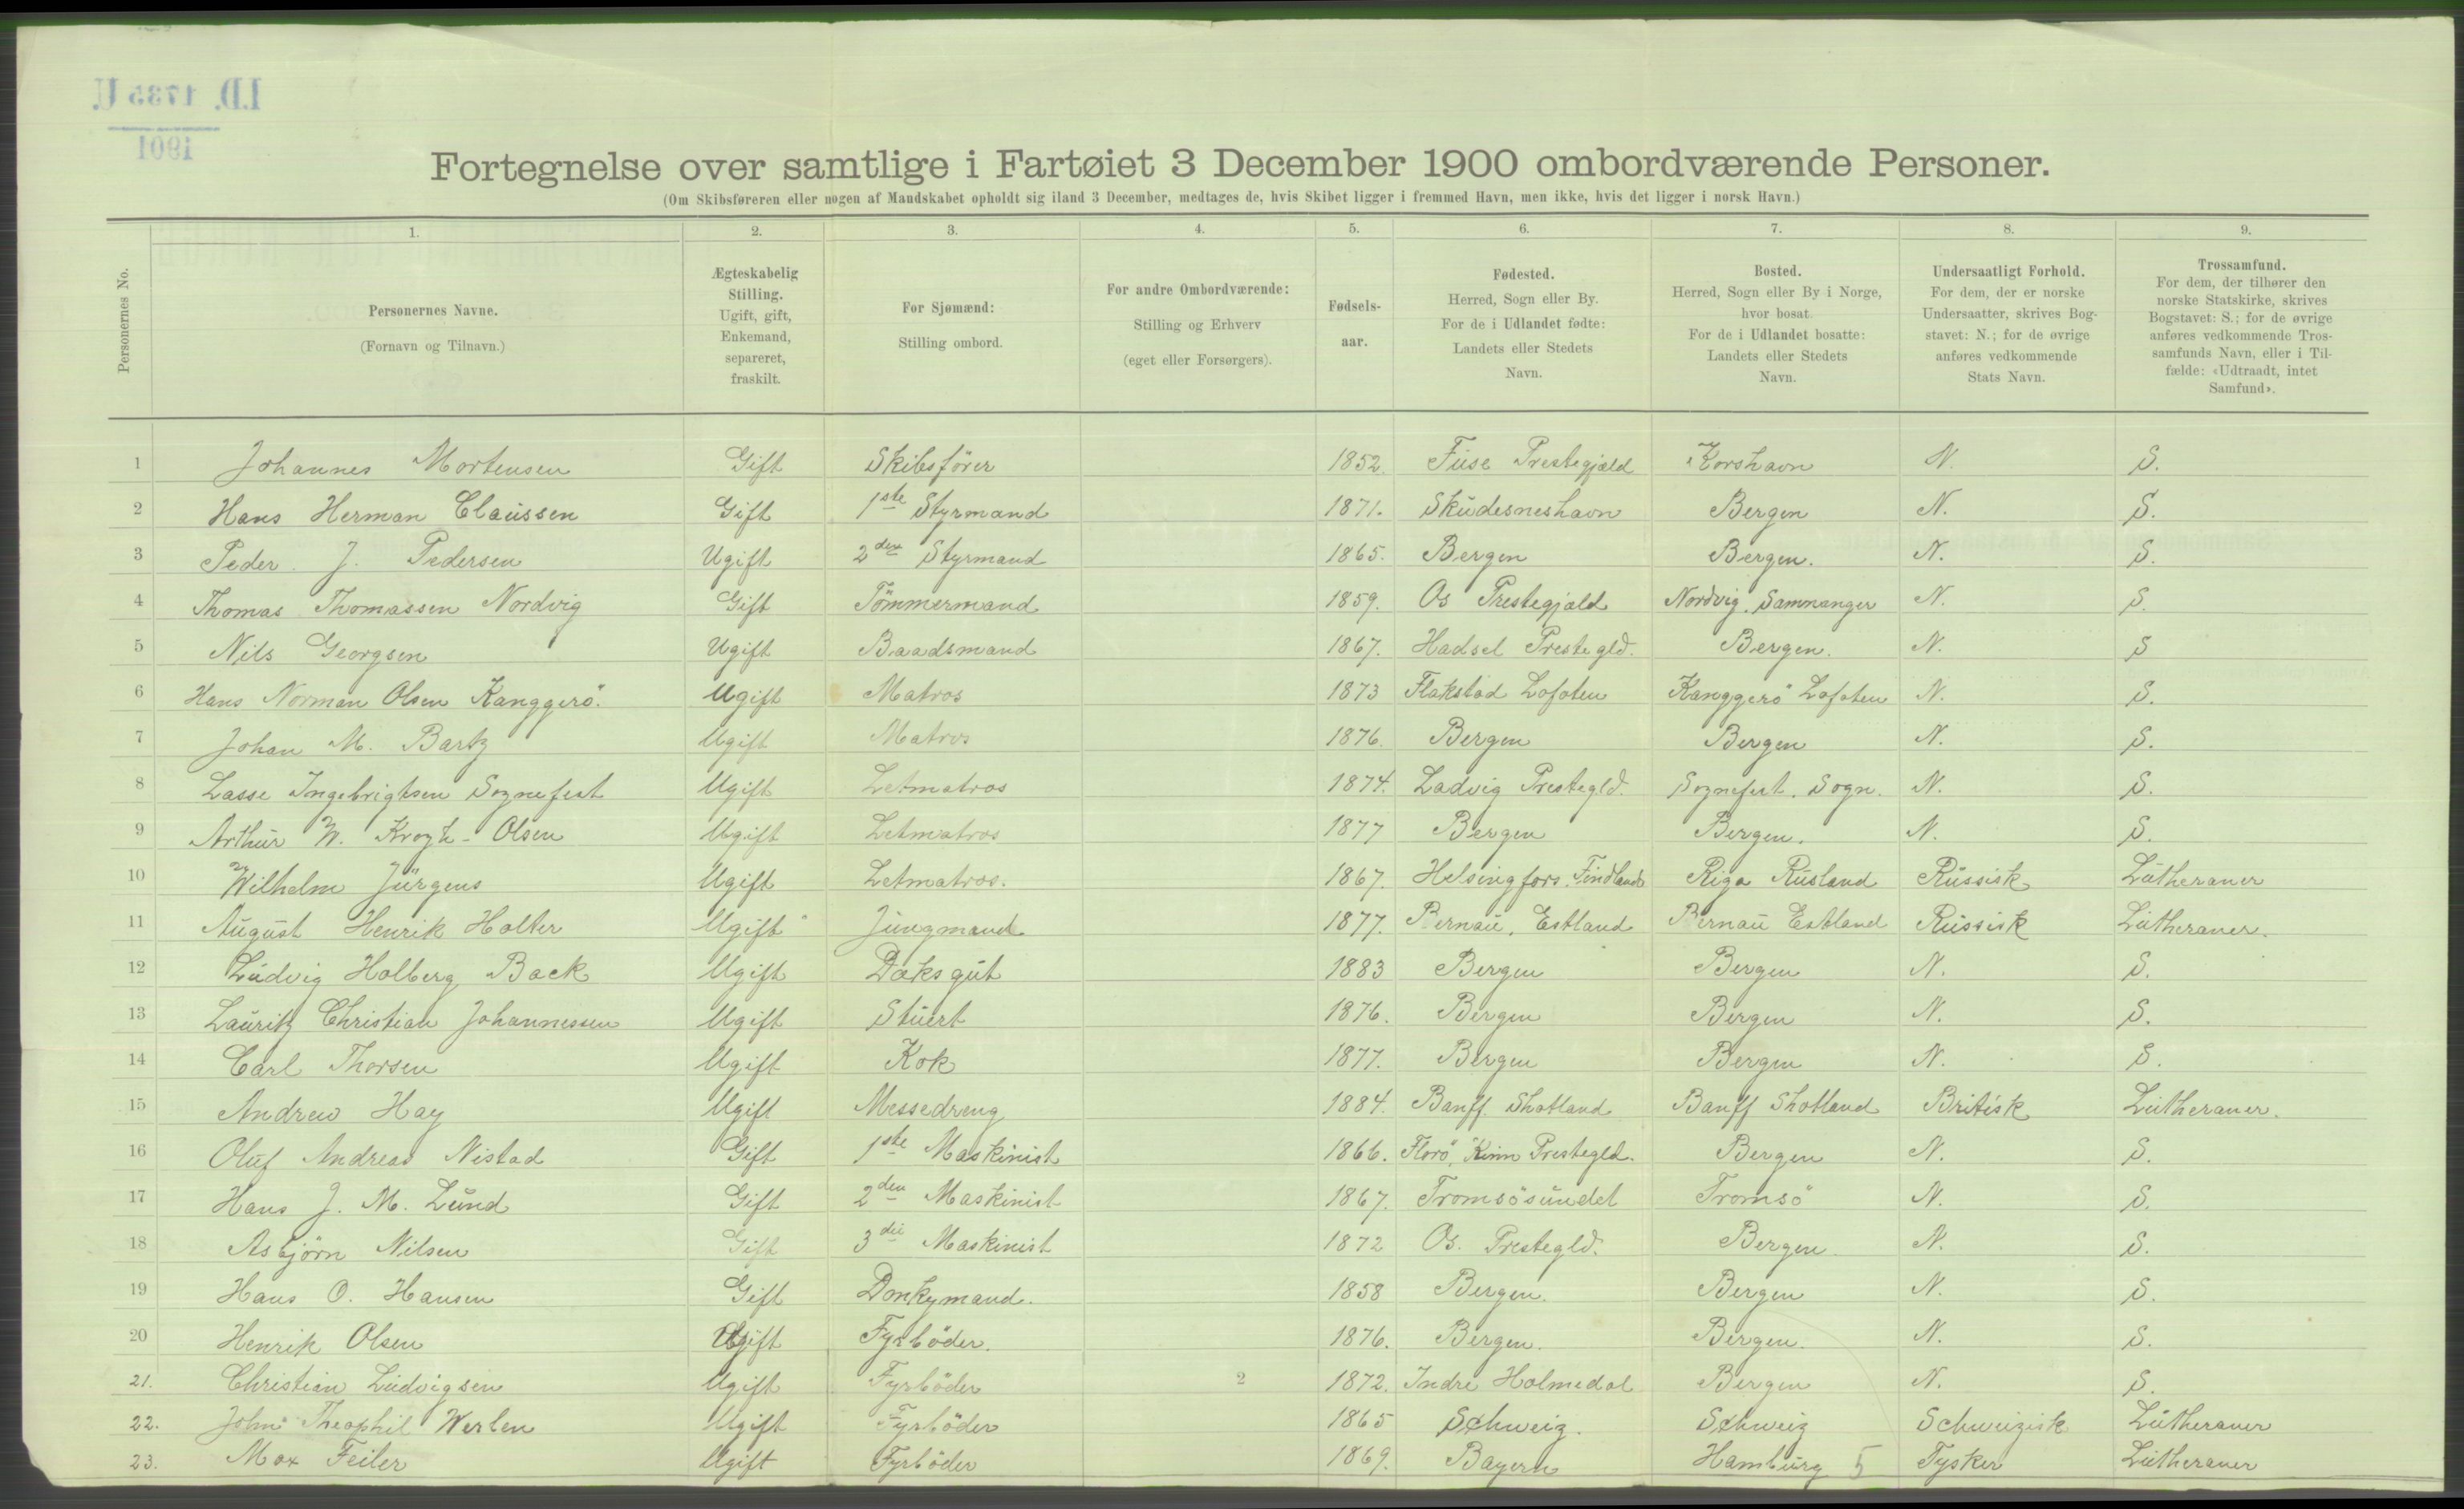 I.D. 1735 U.
1901
Fortegnelse over samtlige i Fartøiet 3 December 1900 ombordværende Personer.
(Om Skibsføreren eller nogen af Mandskabet opholdt sig iland 3 December, medtages de, hvis Skibet ligger i fremmed Havn, men ikke, hvis det ligger i norsk Havn.)
Personernes No.
1. 2. 3. 4. 5. 6. 7. 8. 9.
Personernes Navne.
(Fornavn og Tilnavn.)
Ægteskabelig
Stilling.
Ugift, gift,
Enkemand,
separeret,
fraskilt.
For Sjømænd:
Stilling ombord.
For andre Ombordværende:
Stilling og Erhverv
(eget eller Forsørgers).
Fødsels-
aar.
Fødested.
Herred, Sogn eller By.
For de i Udlandet fødte:
Landets eller Stedets
Navn.
Bosted.
Herred, Sogn eller By i Norge,
hvor bosat.
For de i Udlandet bosatte:
Landets eller Stedets
Navn.
Undersaatligt Forhold.
For dem, der er norske
Undersaatter, skrives Bog-
stavet: N.; for de øvrige
anføres vedkommende
Stats Navn.
Trossamfund.
For dem, der tilhører den
norske Statskirke, skrives
Bogstavet: S.; for de øvrige
anføres vedkommende Tros-
samfunds Navn, eller i Til-
fælde: «Udtraadt, intet
Samfund».
1 Johannes Mortensen Gift Skibsförer 1852. Fuse Prestegjæld Korshavn N. S.
2 Hans Herman Claussen Gift 1ste Styrmand 1871. Skudesneshavn Bergen N. S.
3 Peder J. Pedersen Ugift 2den Styrmand 1865. Bergen Bergen. N. S.
4 Thomas Thomassen Nordvig Gift Tömmermand 1859. Os Prestegjæld Nordvig. Samnanger N. S.
5 Nils Georgsen Ugift Baadsmand 1867. Hadsel Prestegld. Bergen. N. S
6 Hans Norman Olsen Kanggerö. Ugift Matros 1873 Flakstad Lofoten Kanggerö Lofoten N. S.
7 Johan M. Bartz Ugift Matros 1876. Bergen Bergen N. S.
8 Lasse Ingebrigtsen Sognefest Ugift Letmatros 1874. Ladvig Prestegld. Sognefest. Sogn. N. S.
9 Arthur W. Krogh-Olsen Ugift Letmatros 1877 Bergen Bergen. N. S.
10 Wilhelm Jürgens Ugift Letmatros. 1867. Helsingfors. Findland Riga Rusland Russisk Lutheraner
11 August Henrik Holter Ugift Jungmand 1877. Pernau, Estland Pernau Estland Russisk Lutheraner.
12 Ludvig Holberg Back Ugift Dæksgut 1883 Bergen Bergen N. S.
13 Lauritz Christian Johannessen Ugift Stuert 1876. Bergen Bergen N. S.
14 Carl Thorsen Ugift Kok 1877. Bergen Bergen N. S.
15 Andrew Hay Ugift Messedreng 1884. Banff. Skotland Banff Skotland Britisk Lutheraner.
16 Oluf Andreas Nistad Gift 1ste Maskinist 1866. Florö, Kinn Prestegld. Bergen N. S.
17 Hans J. M. Lund Gift 2den Maskinist 1867. Tromsösundet Tromsö N. S.
18 Asbjörn Nilsen Gift 3die Maskinist 1872 Os. Prestegld. Bergen N. S.
19 Hans O. Hansen Gift Donkymand. 1858 Bergen. Bergen N. S.
20 Henrik Olsen Ugift Fyrböder. 1876. Bergen. Bergen. N. S.
21. Christian Ludvigsen Ugift Fyrböder 2 1872. Indre Holmedal Bergen N. S.
22. John Theophil Werlen Ugift Fyrböder 1865 Schweiz. Schweiz Schweizisk Lutheraner
23. Max Feiler Ugift Fyrböder 1869. Bayern Hamburg 5 Tysker Lutheraner